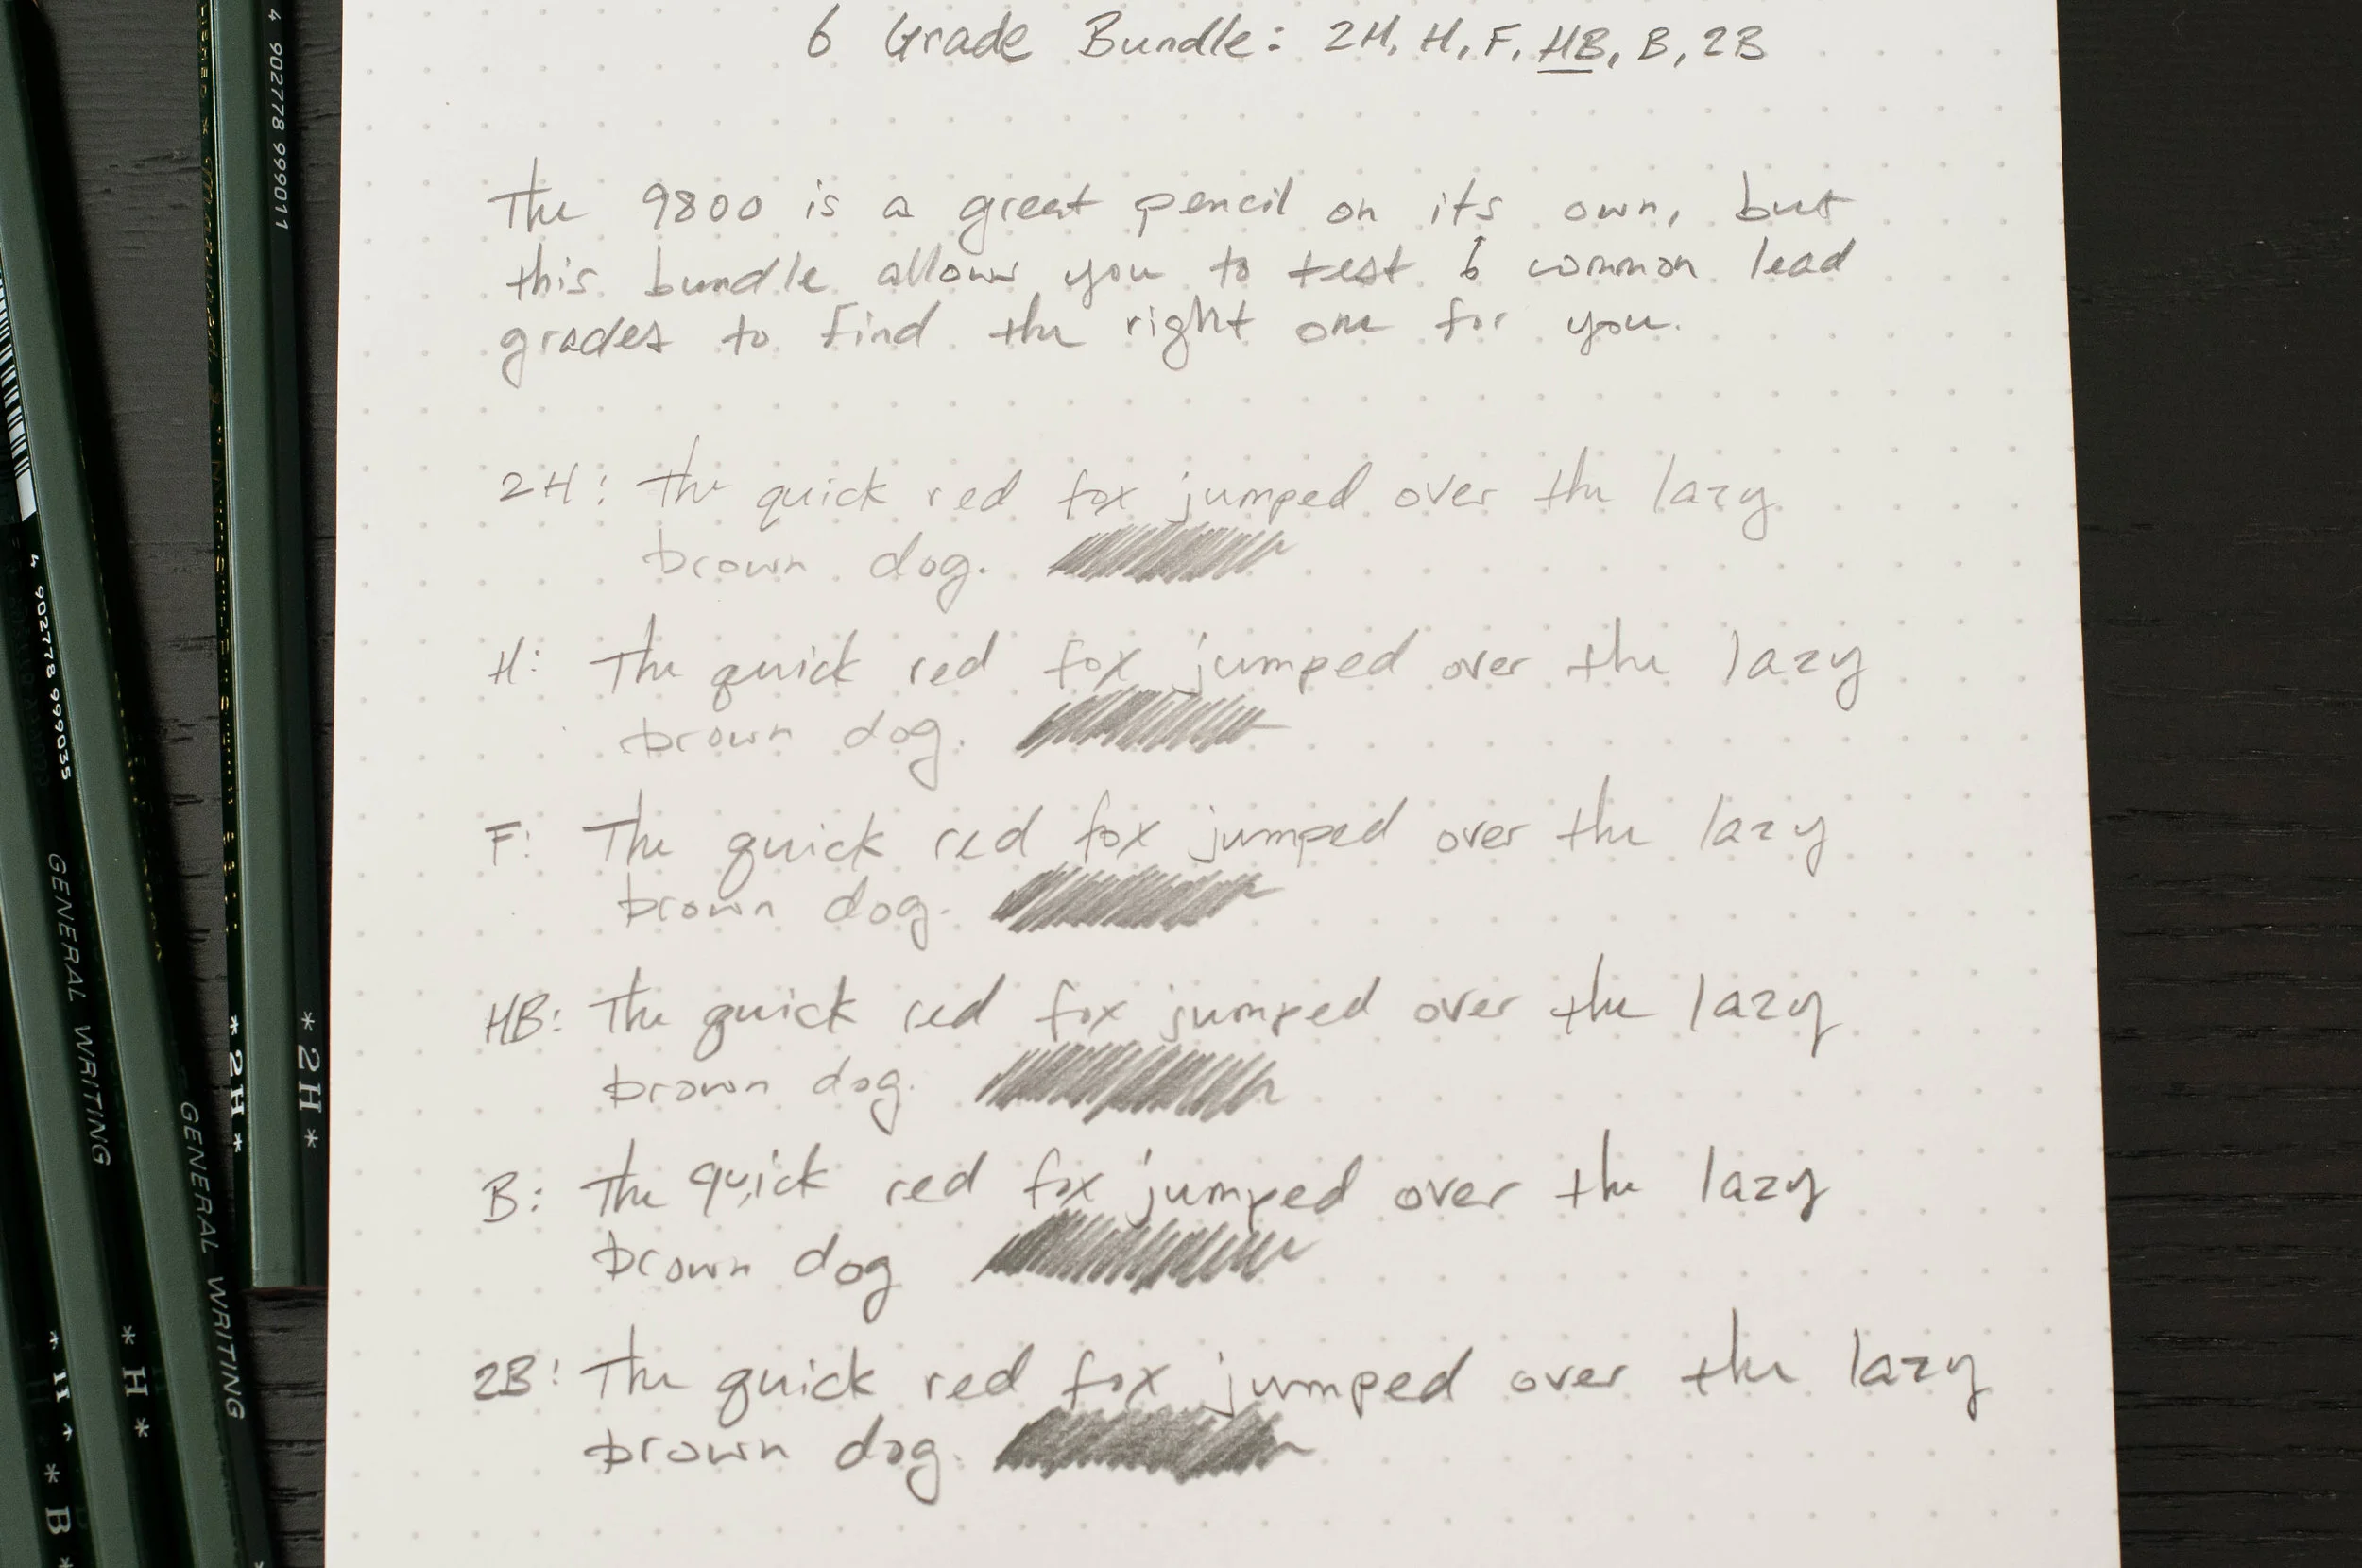 6 Grade Bundle: 2H, H, F, HB, B, 2B
The 9800 is a great pencil on its own, but
this bundle allows you to test 6 common lead
grades to find the right one for you.
2H: The quick red fox jumped over the lazy
brown dog.
H: The quick red fox jumped over the lazy
brown dog.
F: The quick red fox jumped over the lazy
brown dog.
HB: The quick red fox jumped over the lazy
brown dog.
B: The quick red fox jumped over the lazy
brown dog
2B: The quick red fox jumped over the lazy
brown dog.
4 902778 999011
* 2H *
* 2H *
4 902778 999035
GENERAL WRITING
GENERAL WRITING
* H *
* H *
* B *